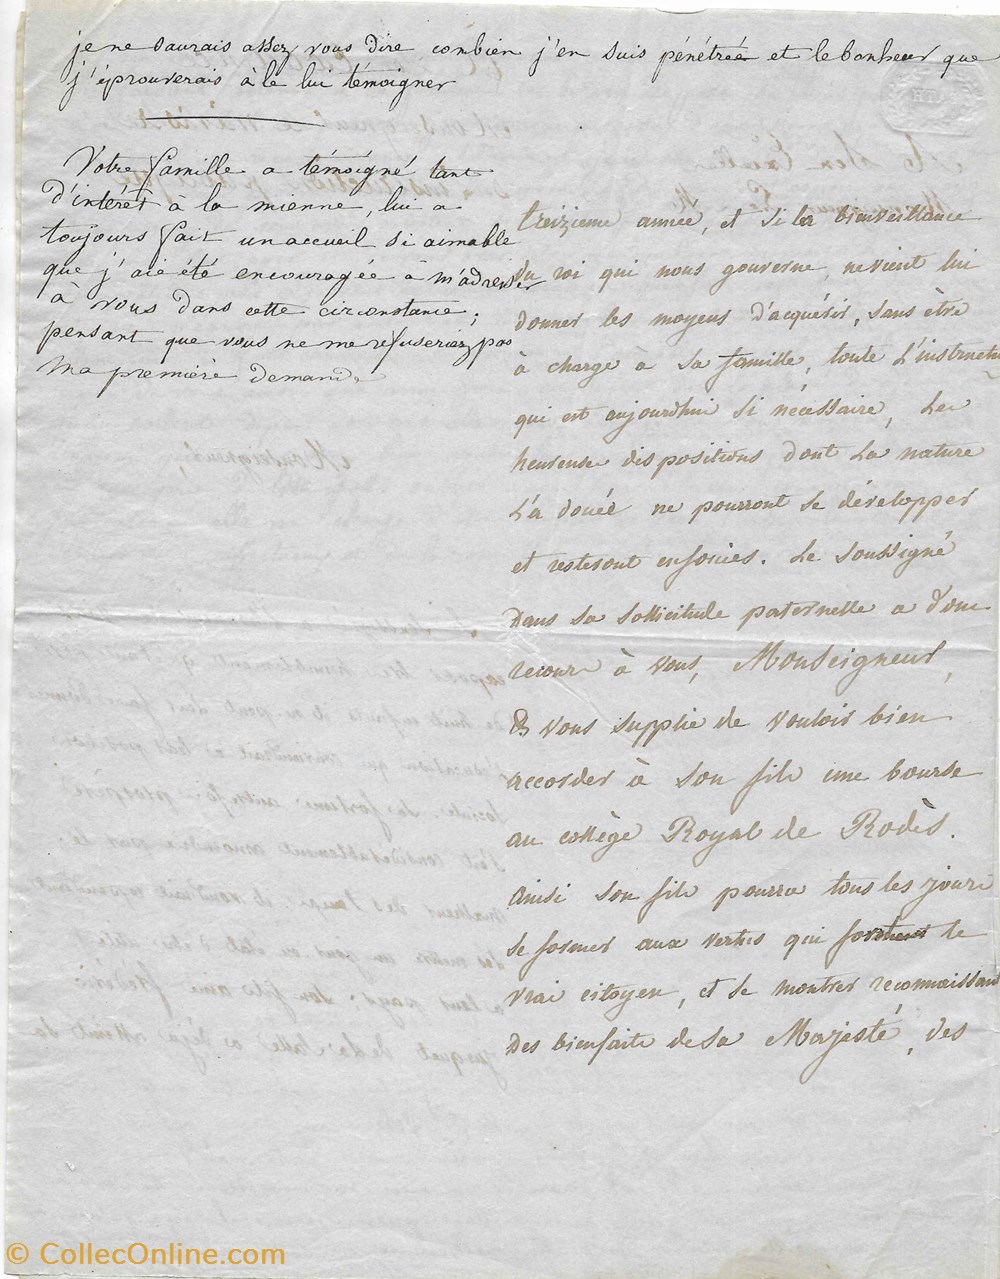 je ne saurais assez vous dire conbien j'en suis pénétrée et le bonheur que
j'éprouverais à le lui témoigner
Votre famille a témoigné tant
d'intérêt à la mienne, lui a
toujours fait un accueil si aimable
que j'aie été encouragée à m'adresser
à vous dans cette circonstance;
pensant que vous ne me refuseriez pas
Ma première demande
treizieme année, et si la bienveillance
du roi qui nous gouverne, nevient lui
donner les moyens d'acquérir, sans être
à charge à sa famille, toute l'instructi
qui est aujourdhui si nécessaire, les
heureuse dispositions dont la nature
l'a douéé ne pourront se développer
et resteront enfouies. Le soussigné
dans sa sollicitude paternelle a donc
recours à vous, Monseigneur,
& vous supplie de vouloir bien
accorder à son fils une bourse
au collège Royal de Rodès.
ainsi son fils pourra tous les jours
se former aux vertus qui forment le
vrai citoyen, et se montrer reconnaissant
des bienfaits de sa Majesté, des
© CollecOnline.com